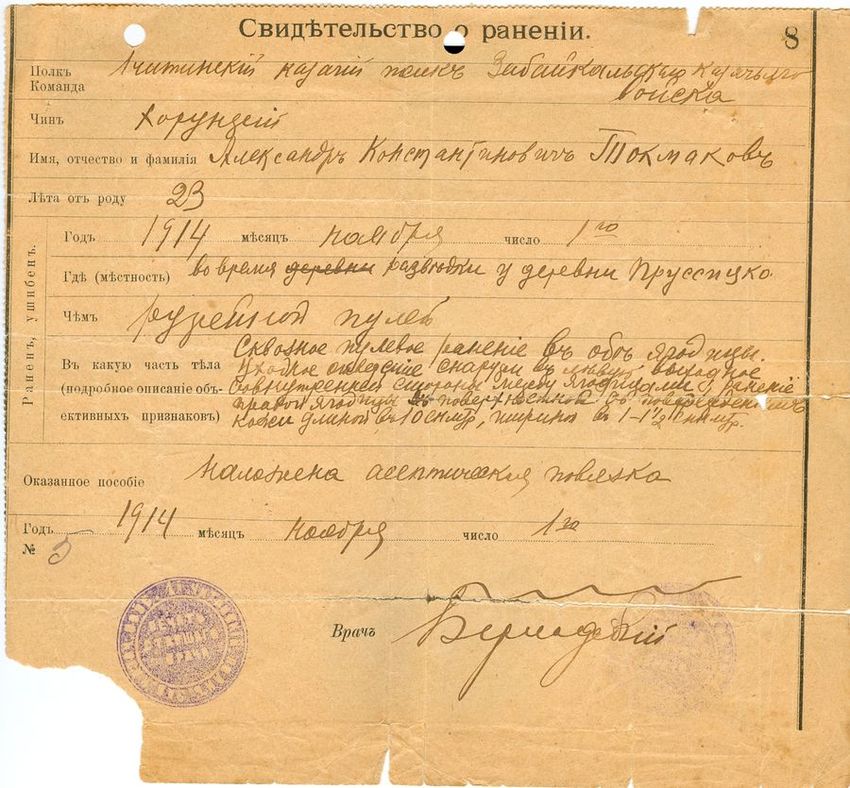 Свидѣтельство о раненіи.
8
Полкъ
Команда
Читинскій казачій полкъ Забайкальскаго казачьяго
войска
Чинъ Хорунжій
Имя, отчество и фамилія Александръ Константиновичъ Токмаковъ
Лѣта отъ роду 23
Раненъ, ушибенъ.
Годъ 1914 мѣсяцъ ноября число 1го
Гдѣ (мѣстность) во время деревни развѣдки у деревни
Чѣмъ ружейной пулей
Въ какую часть тѣла
(подробное описаніе объ-
ективныхъ признаковъ)
Сквозное пулевое раненіе въ обѣ ягодицы.
Входное отверстіе снаружи въ выходное
съ внутренней стороны между ягодицами у раненіе
правой ягодицы поверхностной съ поврежденіемъ
кожи длиной въ 10 снмтр, ширины въ 1-1½
Оказанное пособіе Наложена асептическая повязка
Годъ 1914 мѣсяцъ ноября число 1го
№ 5
Врачъ